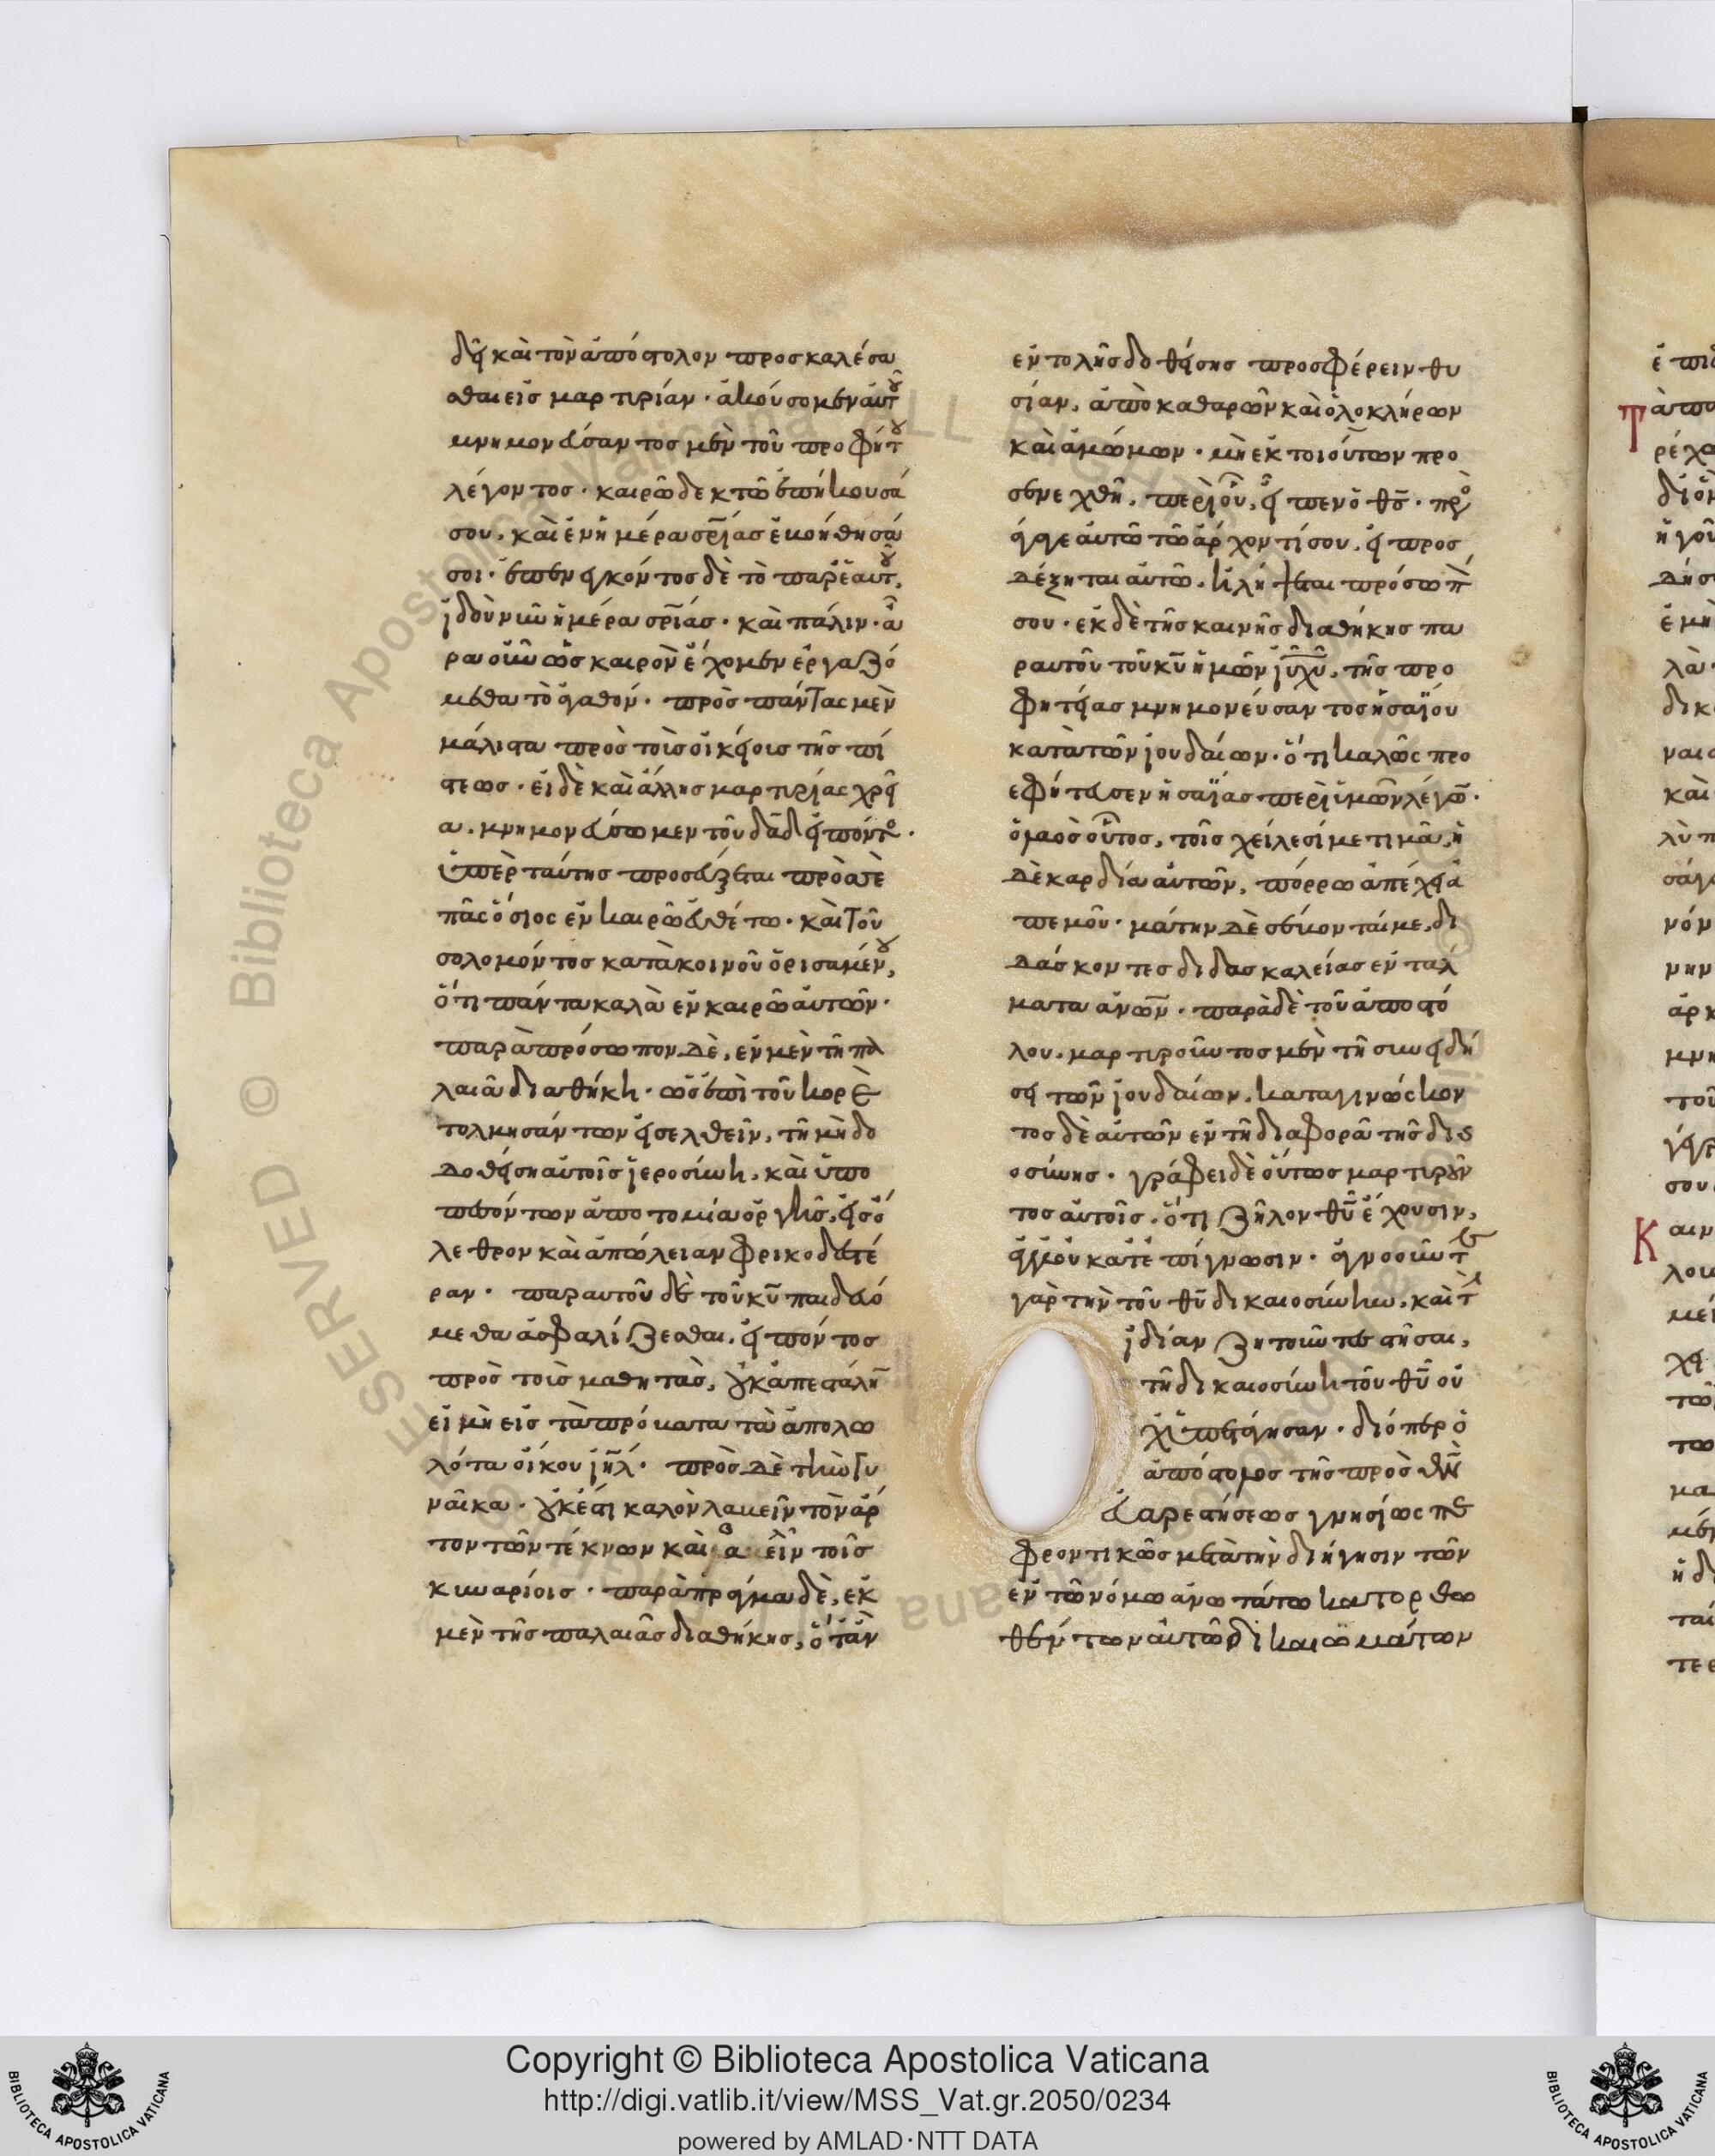 δεῖ καὶ τὸν ἀπόστολον προσκαλέσα
σθαι εἰς μαρτυρίαν· ἀκούσομεν αὐτοῦ
μνημονεύσαντος μὲν τοῦ προφήτου
λέγοντος· καιρῶ δεκτῶ ἐπήκουσά
σου, καὶ ἐν ἡμέρα σρίας ἐβοήθησά
σοι· ἐπενεγκόντος δὲ τὸ παρ' ἑαυτοῦ,
ἰδοὺ νῦν ἡμέρα σρίας· καὶ πάλιν· ἄ
ρα οὖν ὡς καιρὸν ἔχομεν ἐργαζώ
μεθα τὸ ἀγαθόν· πρὸς πάντας μὲν
μάλιστα πρὸς τοὺς οἰκείους τῆς πί
στεως· εἰ δὲ καὶ ἄλλης μαρτυρίας χρεί
α, μνημονεύσωμεν τοῦ δαδ εἰπόντος·
ὑπὲρ ταύτης προσεύξεται πρὸς σὲ
πᾶς ὅσιος ἐν καιρῶ εὐθέτω· καὶ τοῦ
σολομόντος κατὰ κοινοῦ ὁρισαμένου,
ὅτι πάντα καλὰ ἐν καιρῶ αὐτῶν·
παρὰ πρόσωπον δὲ, ἐν μὲν τῆ πα
λαιᾶ διαθήκη· ὡς ἐπὶ τοῦ κορὲ
τολμησάντων εἰσελθεῖν, τῆ μὴ δο
δοθείση αὐτοῖς ἱεροσύνη, καὶ ὑπο
πεσόντων ἀποτομία ὀργῆς, εἰς ὄ
λεθρον καὶ ἀπώλειαν φρικοδεστέ
ραν· παρ αὐτοῦ δὲ τοῦ κυ παιδευό
μεθα ἀσφαλίζεσθαι, εἰπόντος
πρὸς τοὺς μαθητὰς, οὐκ ἀπεστάλην
εἰ μὴ εἰς τὰ πρόβατα τὰ ἀπολω
λότα οἴκου ιηλ· πρὸς δὲ τὴν γυ
ναῖκα· οὐκ ἔστι καλὸν λαβεῖν τὸν ἄρ
τον τῶν τέκνων καὶ βαλεῖν τοῖς
κυναρίοις· παρὰ πρᾶγμα δὲ, ἐκ
μὲν τῆς παλαιᾶς διαθήκης, ὅταν
ἐντολῆς δοθείσης προσφέρειν θυ
σίαν, ἀπὸ καθαρῶν καὶ ὁλοκλήρων
καὶ ἀμώμων· μὴ ἐκ τοιούτων προ
σενεχθῆ, περὶ οὗ, εἶπεν ὁ θς· προσ
άγαγε αὐτῶ τῶ ἄρχοντί σου, εἰ προσ
δέξηται αὐτῶ, εἰ λήψεται πρόσωπόν
σου· ἐκ δὲ τῆς καινῆς διαθήκης πα
ρ αὐτοῦ τοῦ κυ ἡμῶν ιυ χυ, τῆς προ
φητείας μνημονεύσαντος ἡσαΐου
κατὰ τῶν ἰουδαίων· ὅτι καλῶς προ
εφήτευσεν ἡσαΐας περὶ ὑμῶν λέγων·
ὁ λαὸς οὗτος, τοῖς χείλεσί με τιμᾶ, ἡ
δὲ καρδία αὐτῶν, πόρρω ἀπέχει ἀ
π ἐμοῦ· μάτην δὲ σέβονταί με, δι
δάσκοντες διδασκαλείας ἐντάλ
ματα ἀνων· παρὰ δὲ τοῦ ἀποστό
λου, μαρτυροῦντος μὲν τῆ συνειδή
σει τῶν ἰουδαίων, καταγινώσκον
τος δὲ αὐτῶν ἐν τῆ διαφορᾶ τῆς δικαι
οσύνης· γράφει δὲ οὕτως μαρτυροῦν
τος αὐτοῖς, ὅτι ζῆλον θυ ἔχουσιν,
ἀλλ' οὐ κατ' ἐπίγνωσιν· ἀγνοοῦντες
γὰρ τὴν τοῦ θυ δικαιοσύνην, καὶ τὴν
ἰδίαν ζητοῦντες στῆσαι,
τῆ δικαιοσύνη τοῦ θυ οὐ
χ ὑπετάγησαν· διόπερ ὁ
ἀπόστολος τῆς πρὸς θν
εὐαρεστήσεως γνησίως πε
φροντικῶς μετὰ τὴν διήγησιν τῶν
ἐν τῶ νόμω ἀνω τάτω κατορθω
θέντων αὐτῶ δικαιωμάτων
Copyright © Biblioteca Apostolica Vaticana
http://digi.vatlib.it/view/MSS_Vat.gr.2050/0234
powered by AMLAD·NTT DATA